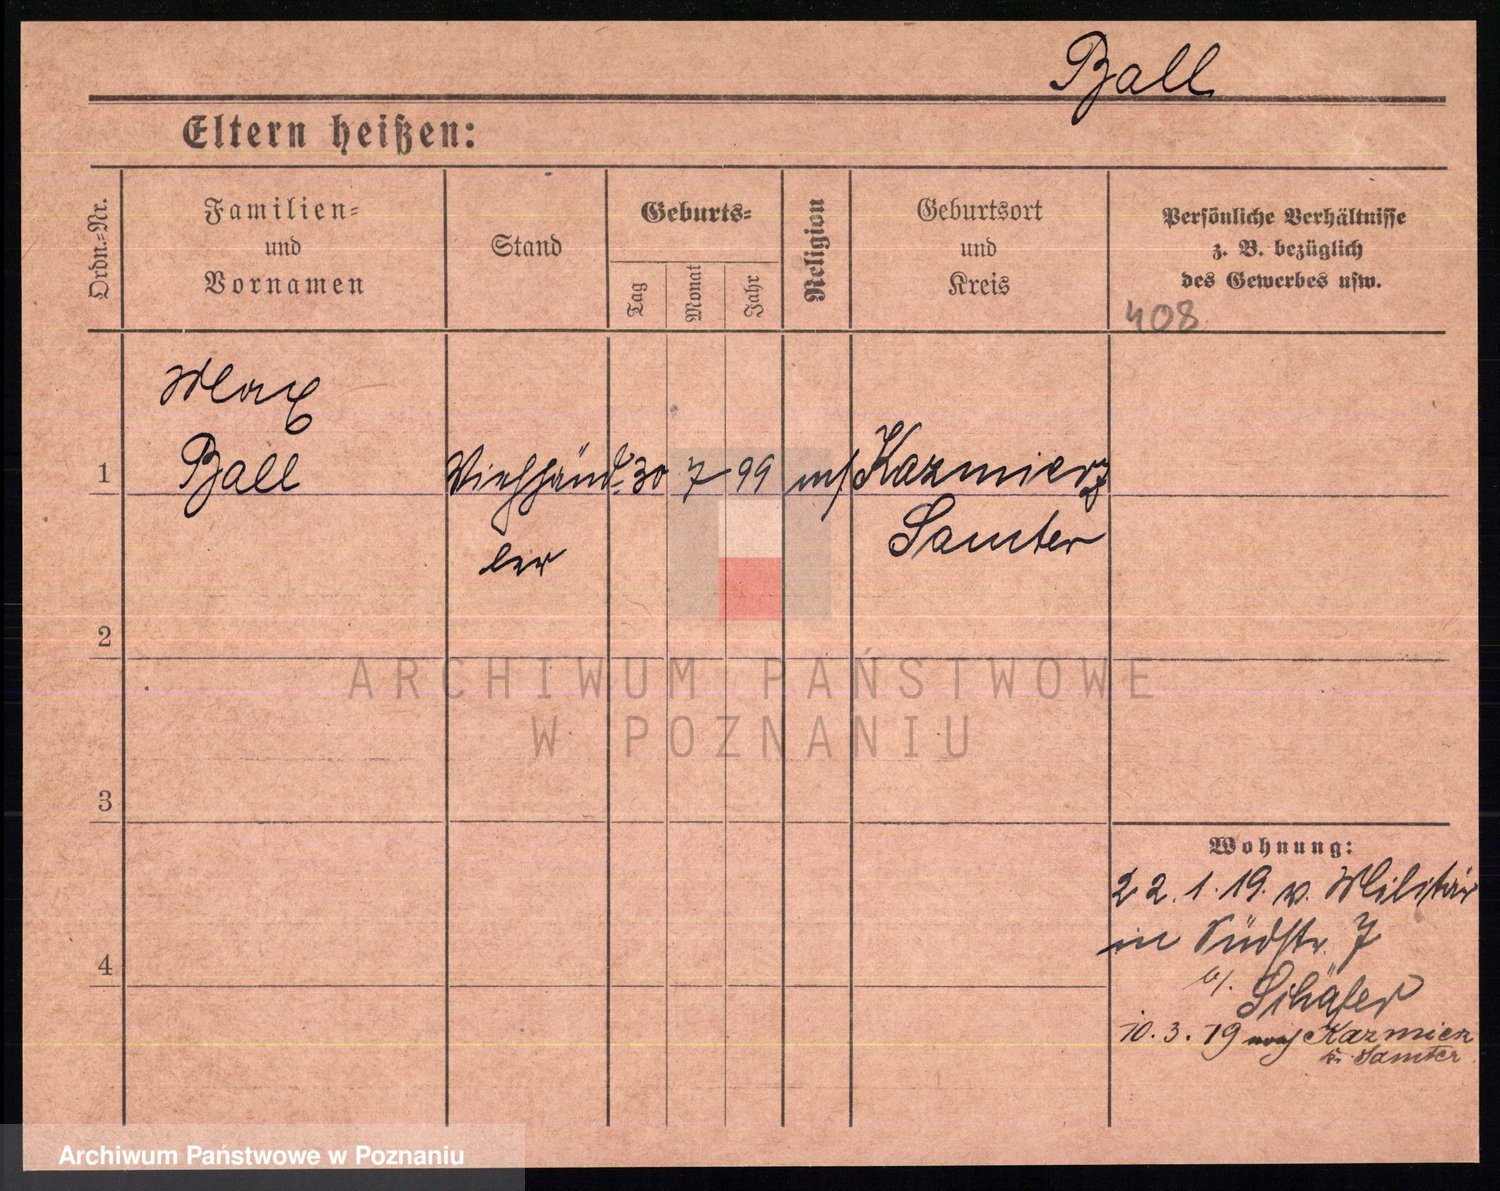 Ball
Eltern heißen:
Ordn.-Nr.
Familien-
und
Vornamen
Stand
Geburts-
Tag
Monat
Jahr
Religion
Geburtsort
und
Kreis
Persönliche Verhältnisse
z. B. bezüglich
des Gewerbes usw.
408
Max
1 Ball Viehhänd- 30 7 99 Kazmierz
ler Samter
2
ARCHIWUM PAŃSTWOWE
W POZNANIU
3
Wohnung:
22.1.19. v. Militär
in Südstr. 7
b/. Schäfer
4
10.3.19 nach Kazmierz
Kr. Samter
Archiwum Państwowe w Poznaniu